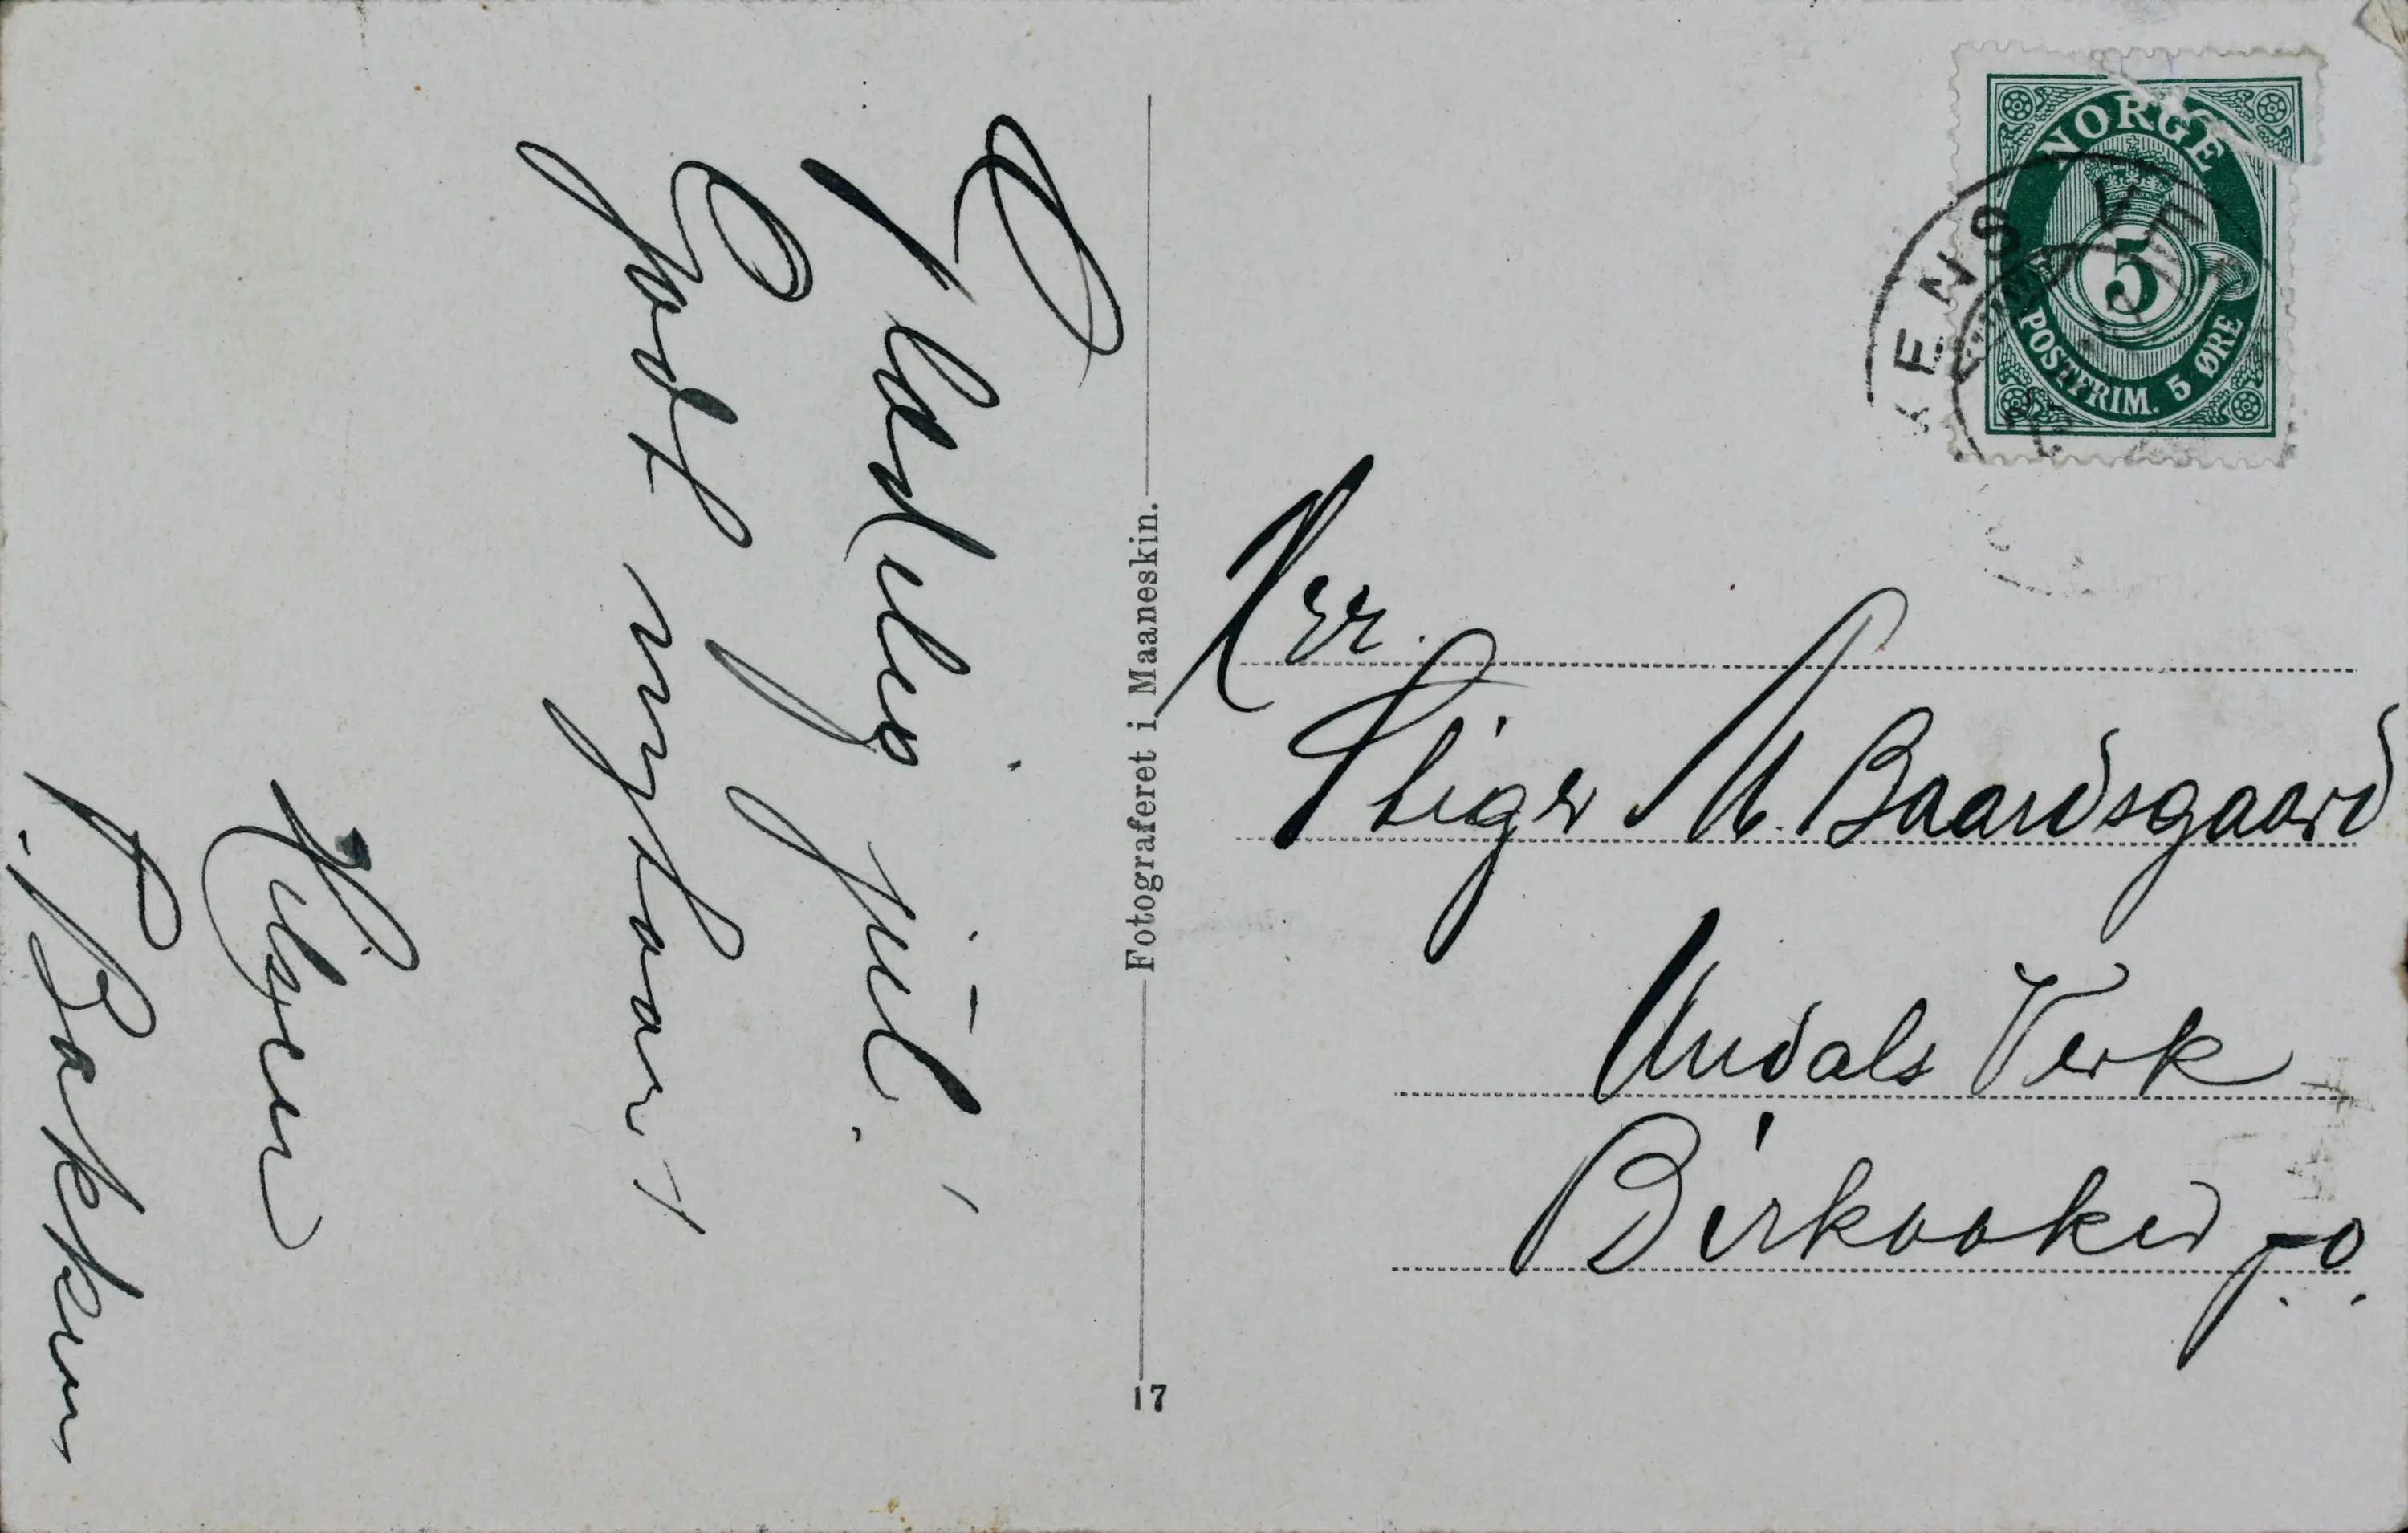 Gladelig jul.
Godt nytaar!
Hilsen
P. Bakken
Fotograferet i Maaneskin.
17
NORGE
5
POSTFRIM. 5 ØRE
KENS VE
Herr.
Stiger M. Baardsgaard
Undals Verk
Birkaaker p.o.